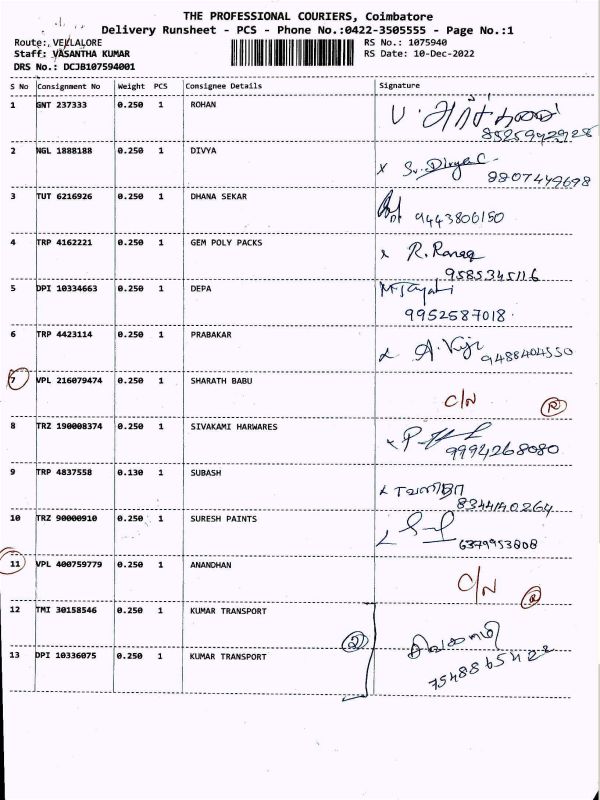 THE PROFESSIONAL COURIERS, Coimbatore
Delivery Runsheet - PCS - Phone No.:0422-3505555 - Page No.:1
Route: VELLALORE
RS No.: 1075940
Staff: VASANTHA KUMAR
RS Date: 10-Dec-2022
DRS No.: DCJB107594001
S No Consignment No Weight PCS Consignee Details Signature
1 GNT 237333 0.250 1 ROHAN
8525942928
2 NGL 1888188 0.250 1 DIVYA x Sv. Divya C
8807449698
3 TUT 6216926 0.250 1 DHANA SEKAR 9443806150
4 TRP 4162221 0.250 1 GEM POLY PACKS x R.
9585345116
5 DPI 10334663 0.250 1 DEPA
9952587018.
6 TRP 4423114 0.250 1 PRABAKAR A. Viji 9488404550
7 VPL 216079474 0.250 1 SHARATH BABU C/N R
8 TRZ 190008374 0.250 1 SIVAKAMI HARWARES
9994268080
9 TRP 4837558 0.130 1 SUBASH
8344140264
10 TRZ 90000910 0.250 1 SURESH PAINTS
6379953808
11 VPL 400759779 0.250 1 ANANDHAN C/N R
12 TMI 30158546 0.250 1 KUMAR TRANSPORT
2
13 DPI 10336075 0.250 1 KUMAR TRANSPORT 7548865422